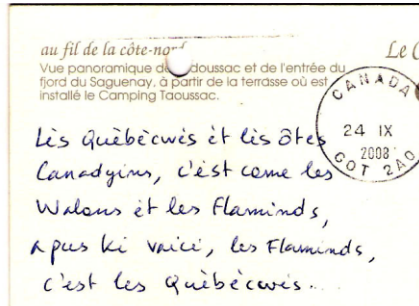 au fil de la côte-nord
Le C
Vue panoramique de doussac et de l'entrée du
fjord du Saguenay, à partir de la terrasse où est
installé le Camping Taoussac.
CANADA
24 IX
2008
G0T 2A0
Lès Quèbècwès èt lès ôtes
Canadyins, c'èst come les
Walons èt les Flaminds,
apus ki vaici, les Flaminds,
c'èst les Quèbècwès...